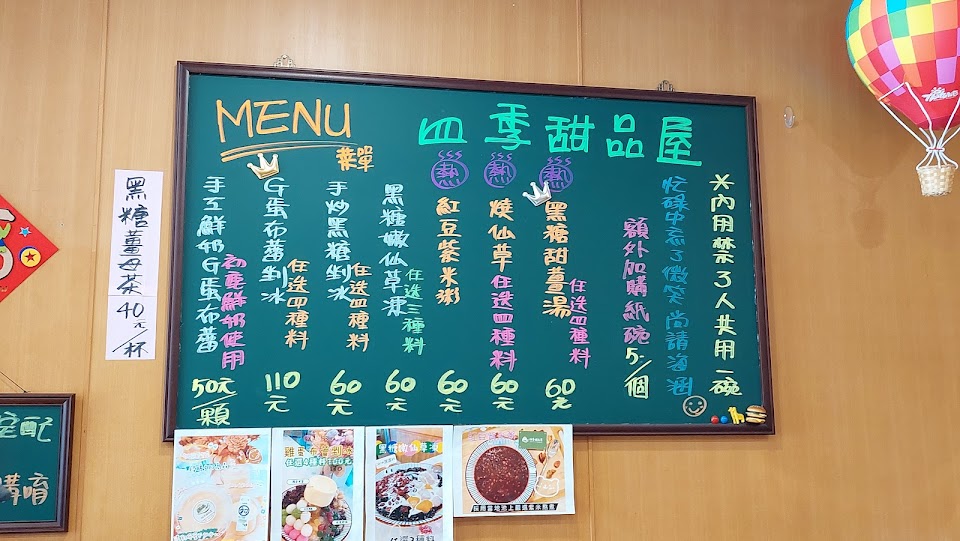 MENU
菜單
四季甜品屋
※內用禁3人共用一碗
忙碌中忘了微笑 尚請海涵
額外加購紙碗5.-/個
熱
黑糖甜薑湯
任選四種料
60元
熱
燒仙草任選四種料
60元
熱
紅豆紫米粥
60元
黑糖嫩仙草凍
任選三種料
60元
手炒黑糖剉冰
任選四種料
60元
G蛋布蕾剉冰
任選四種料
110元
手工鮮奶G蛋布蕾
初鹿鮮奶使用
50元/顆
黑糖薑母茶
40元/杯
宅配
購唷
雞蛋布蕾剉冰
任選4種料100元
黑糖嫩仙草凍
任選3種料